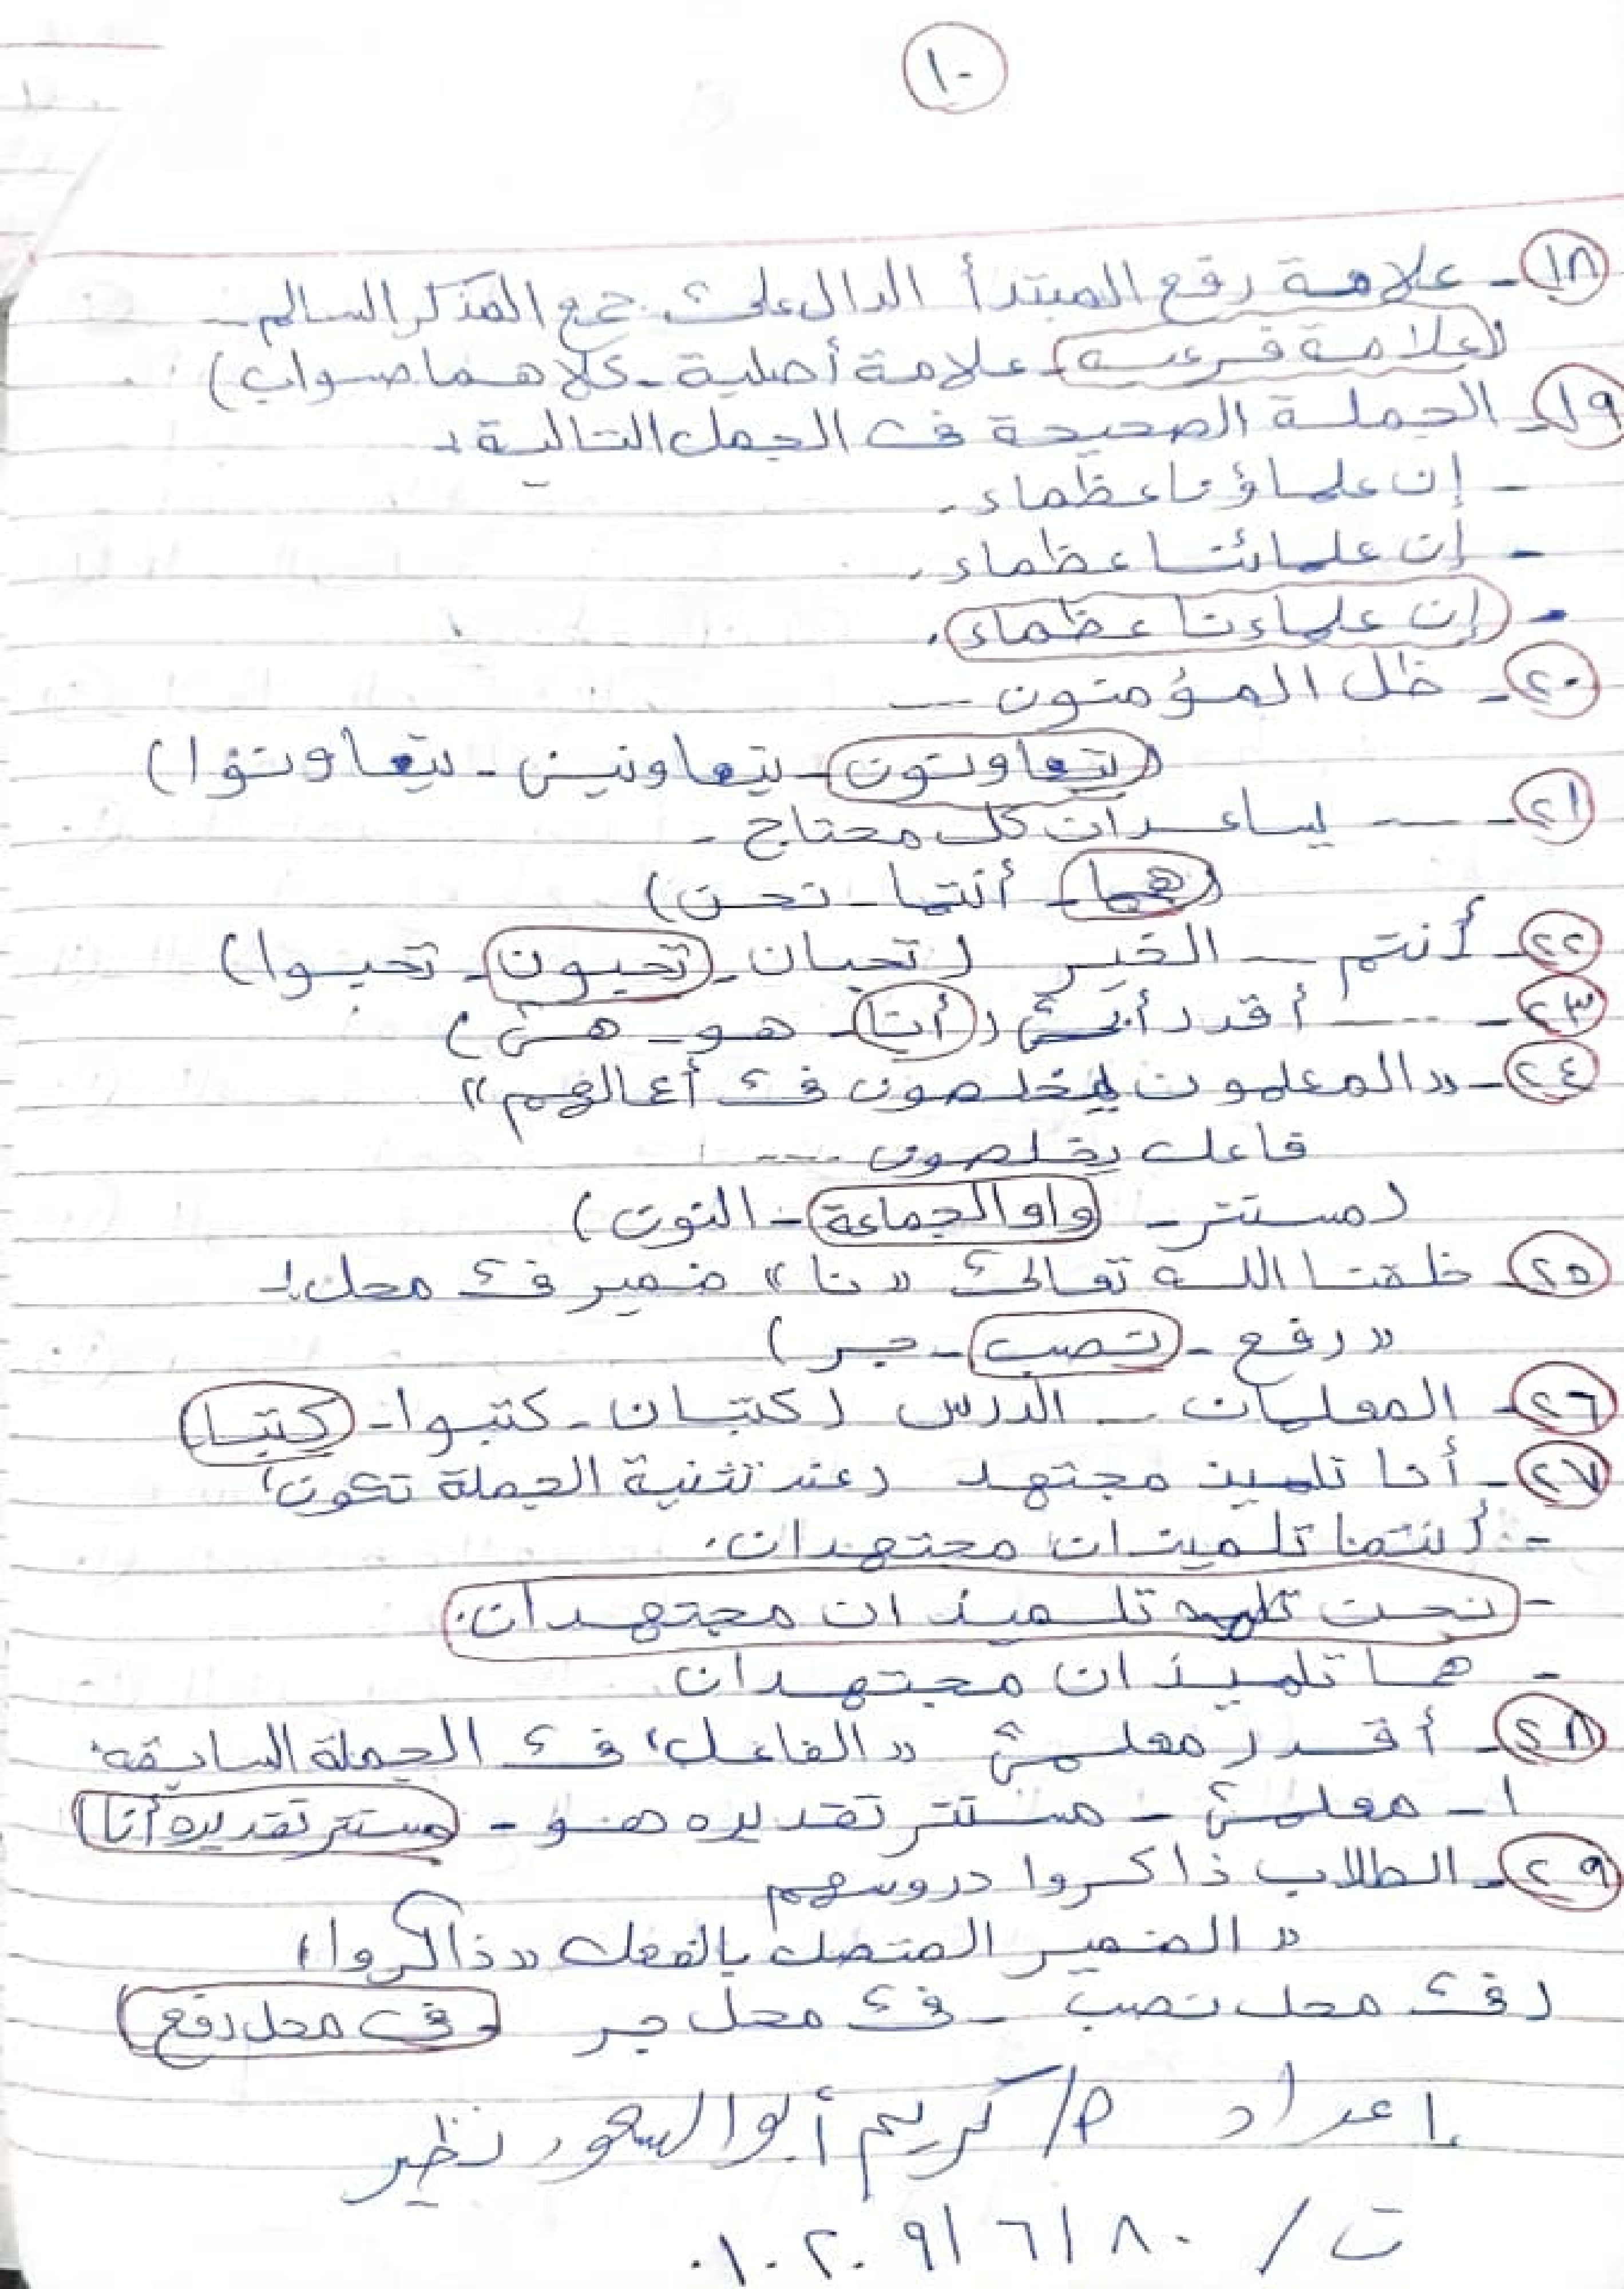 ١٠
١٨- علامة رفع المبتدأ الدال على جمع المذكر السالم ..
(علامة فرعية - علامة أصلية - كلاهما صواب)
١٩- الجملة الصحيحة في الجمل التالية :-
- إن علماؤنا عظماء .
- إن علمائنا عظماء .
- إن علماءنا عظماء .
٢٠- ظل المؤمنون ---
(يتعاونون - يتعاونين - يتعاونوا)
٢١- --- يساعدان كل محتاج -
(هما - أنتما - نحن)
٢٢- أنتم -- الخير (تحبان - تحبون - تحبوا)
٢٣- ---- أقدر أبي (أنا - هو - هي)
٢٤- «المعلمون يخلصون في أعمالهم»
فاعل يخلصون ----
(مستتر - واو الجماعة - النون)
٢٥- خلقنا الله تعالى «نا» ضمير في محل :-
«رفع - نصب - جر)
٢٦- المعلمان -- الدرس (كتبان - كتبوا - كتبا)
٢٧- أنا تلميذ مجتهد (عند تثنية الجملة تكون)
- أنتما تلميذان مجتهدان .
- نحن تلميذان مجتهدان .
- هما تلميذان مجتهدان
٢٨- أقدر معلمي «الفاعل» في الجملة السابقة :
١- معلمي - مستتر تقديره هو - مستتر تقديره أنا
٢٩- الطلاب ذاكروا دروسهم
«الضمير المتصل بالفعل «ذاكروا»
(في محل نصب - في محل جر - في محل رفع
إعداد م/ كريم أبوالسعود نظير
ت / ٠١٠٢٠٩١٦١٨٠